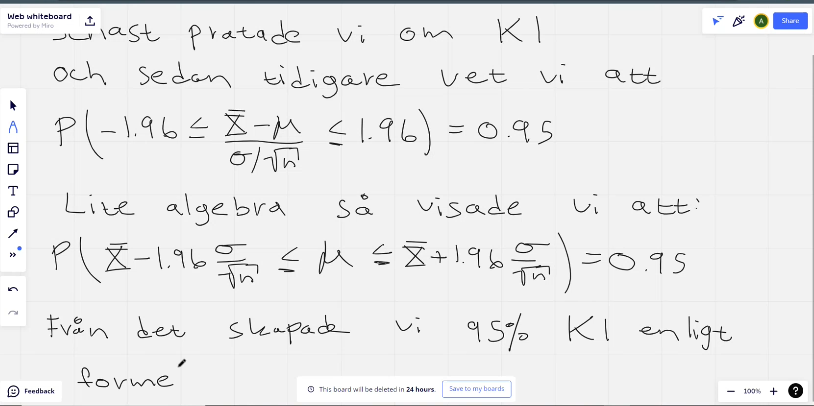 Web whiteboard
Powered by Miro
A
Share
Senast pratade vi om KI
och sedan tidigare vet vi att
P(-1.96 ≤ (X̄-μ)/(σ/√n) ≤ 1.96) = 0.95
Lite algebra så visade vi att:
P(X̄-1.96 σ/√n ≤ μ ≤ X̄+1.96 σ/√n) = 0.95
Från det skapade vi 95% KI enligt
forme
Feedback
This board will be deleted in 24 hours. Save to my boards
100%